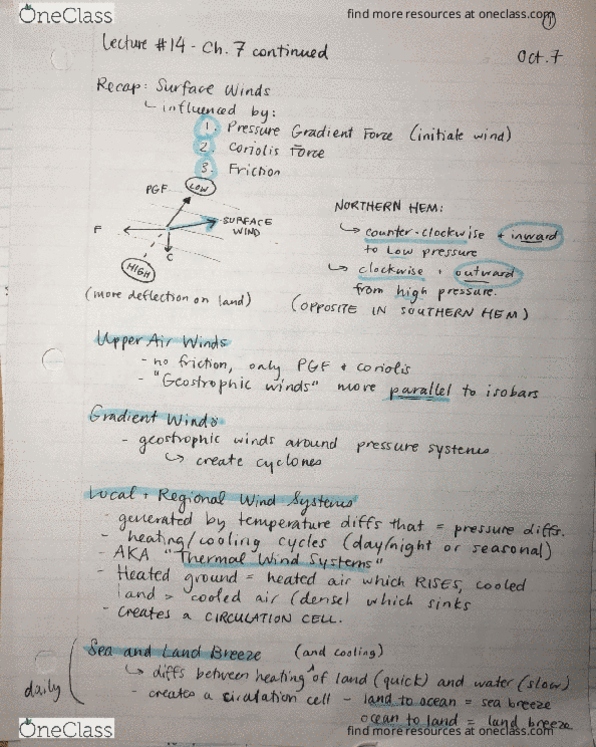 OneClass
find more resources at oneclass.com
1
Lecture #14 - Ch. 7 continued
Oct. 7
Recap: Surface Winds
influenced by:
1. Pressure Gradient Force (initiate wind)
2. Coriolis Force
3. Friction
PGF
LOW
F
SURFACE
WIND
C
HIGH
(more deflection on land)
NORTHERN HEM:
counter-clockwise + inward
to Low pressure
clockwise + outward
from high pressure.
(OPPOSITE IN SOUTHERN HEM)
Upper Air Winds
- no friction, only PGF + coriolis
- "Geostrophic winds" more parallel to isobars
Gradient Winds
- geostrophic winds around pressure systems
create cyclones
Local + Regional Wind Systems
- generated by temperature diffs that = pressure diffs.
- heating/cooling cycles (day/night or seasonal)
- AKA "Thermal Wind Systems"
- Heated ground = heated air which RISES, cooled
land > cooled air (dense) which sinks
- creates a CIRCULATION CELL.
Sea and Land Breeze (and cooling)
diffs between heating ^ of land (quick) and water (slow)
daily
- creates a circulation cell - land to ocean = sea breeze
ocean to land = land breeze
OneClass
find more resources at oneclass.com